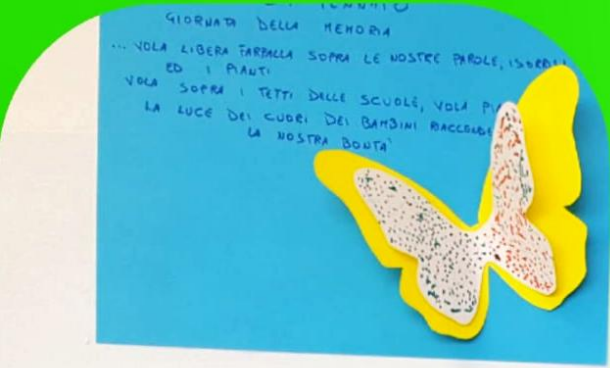 GIORNATA DELLA MEMORIA
... VOLA LIBERA FARFALLA SOPRA LE NOSTRE PAROLE,
ED I PIANTI
VOLA SOPRA I TETTI DELLE SCUOLE, VOLA
LA LUCE DEI CUORI DEI BAMBINI RIACCENDE
LA NOSTRA BONTA'